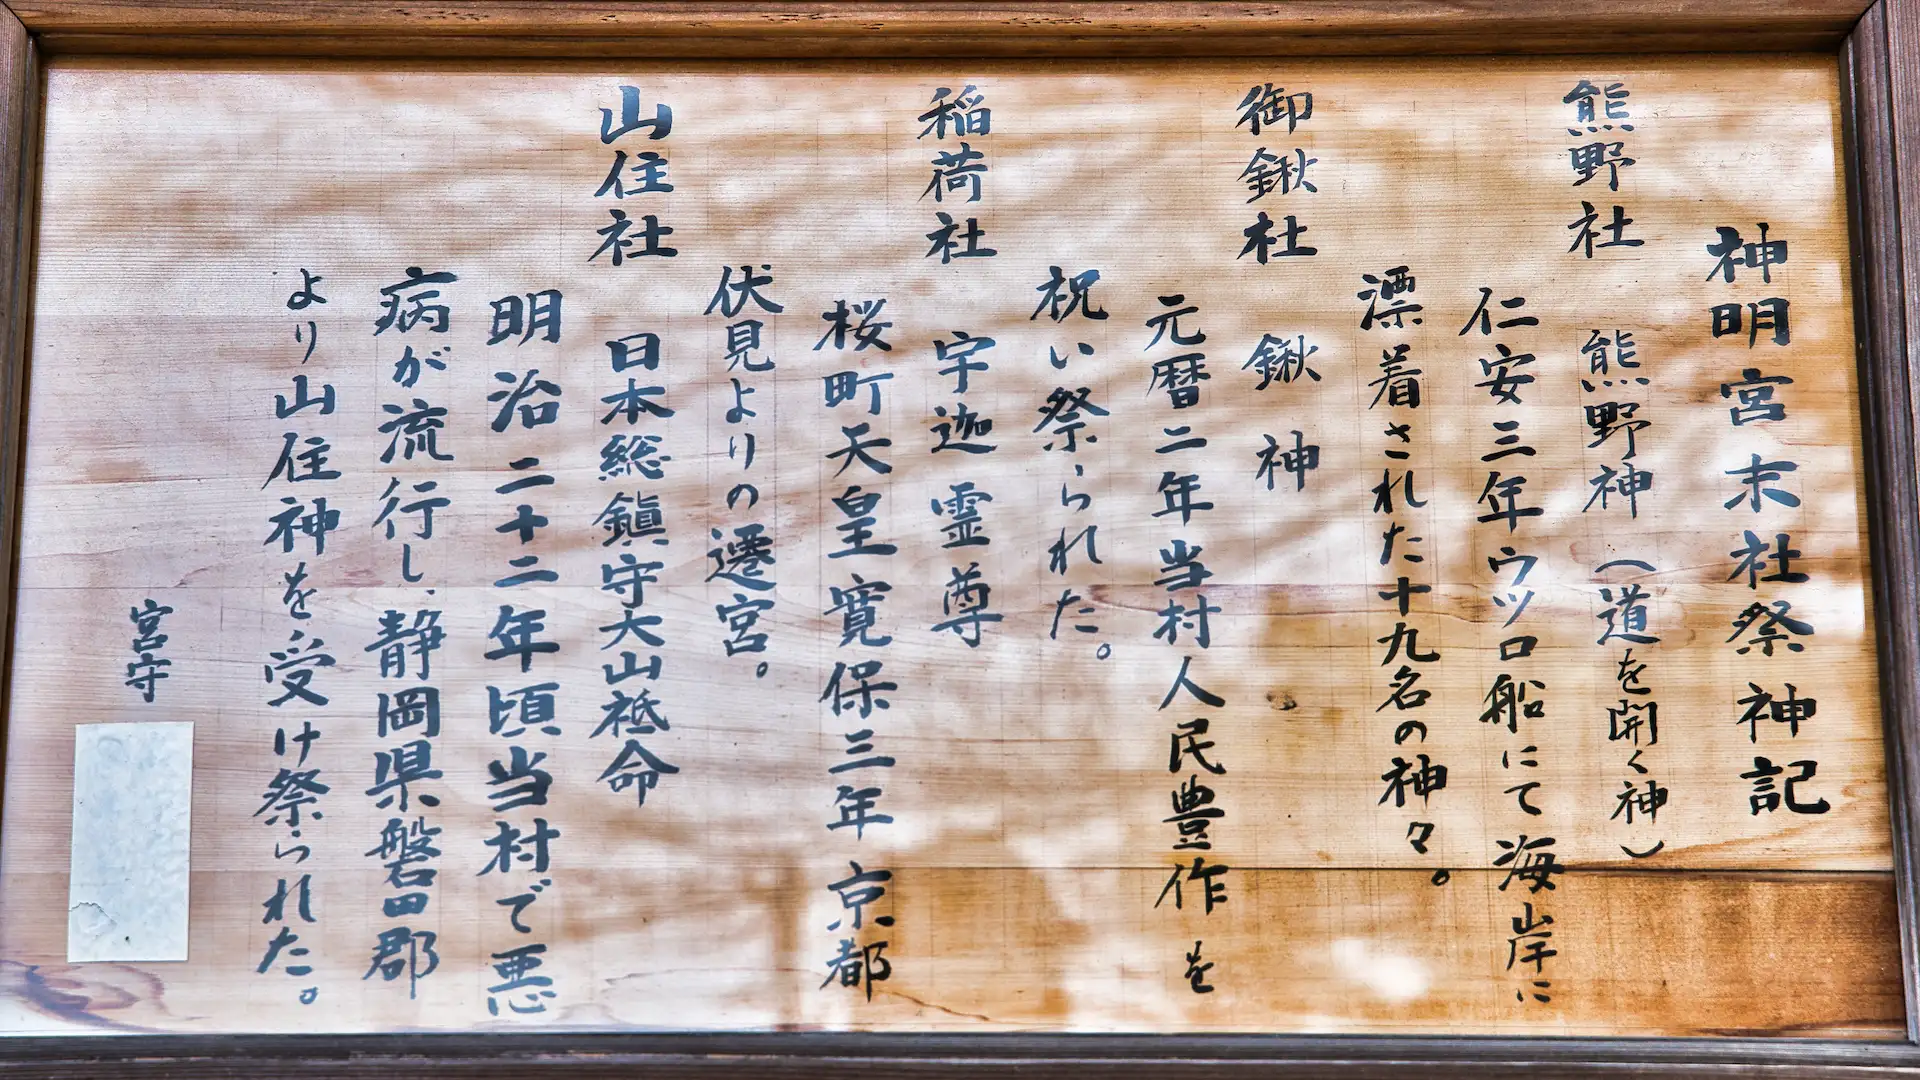 神明宮末社祭神記
熊野社　熊野神（道を開く神）
仁安三年ウツロ船にて海岸に
漂着された十九名の神々。
御鍬社　鍬神
元暦二年当村人民豊作を
祝い祭られた。
稲荷社　宇迦霊尊
桜町天皇寛保三年京都
伏見よりの遷宮。
山住社　日本総鎮守大山祗命
明治二十二年頃当村で悪
病が流行し、静岡県磐田郡
より山住神を受け祭られた。
宮守